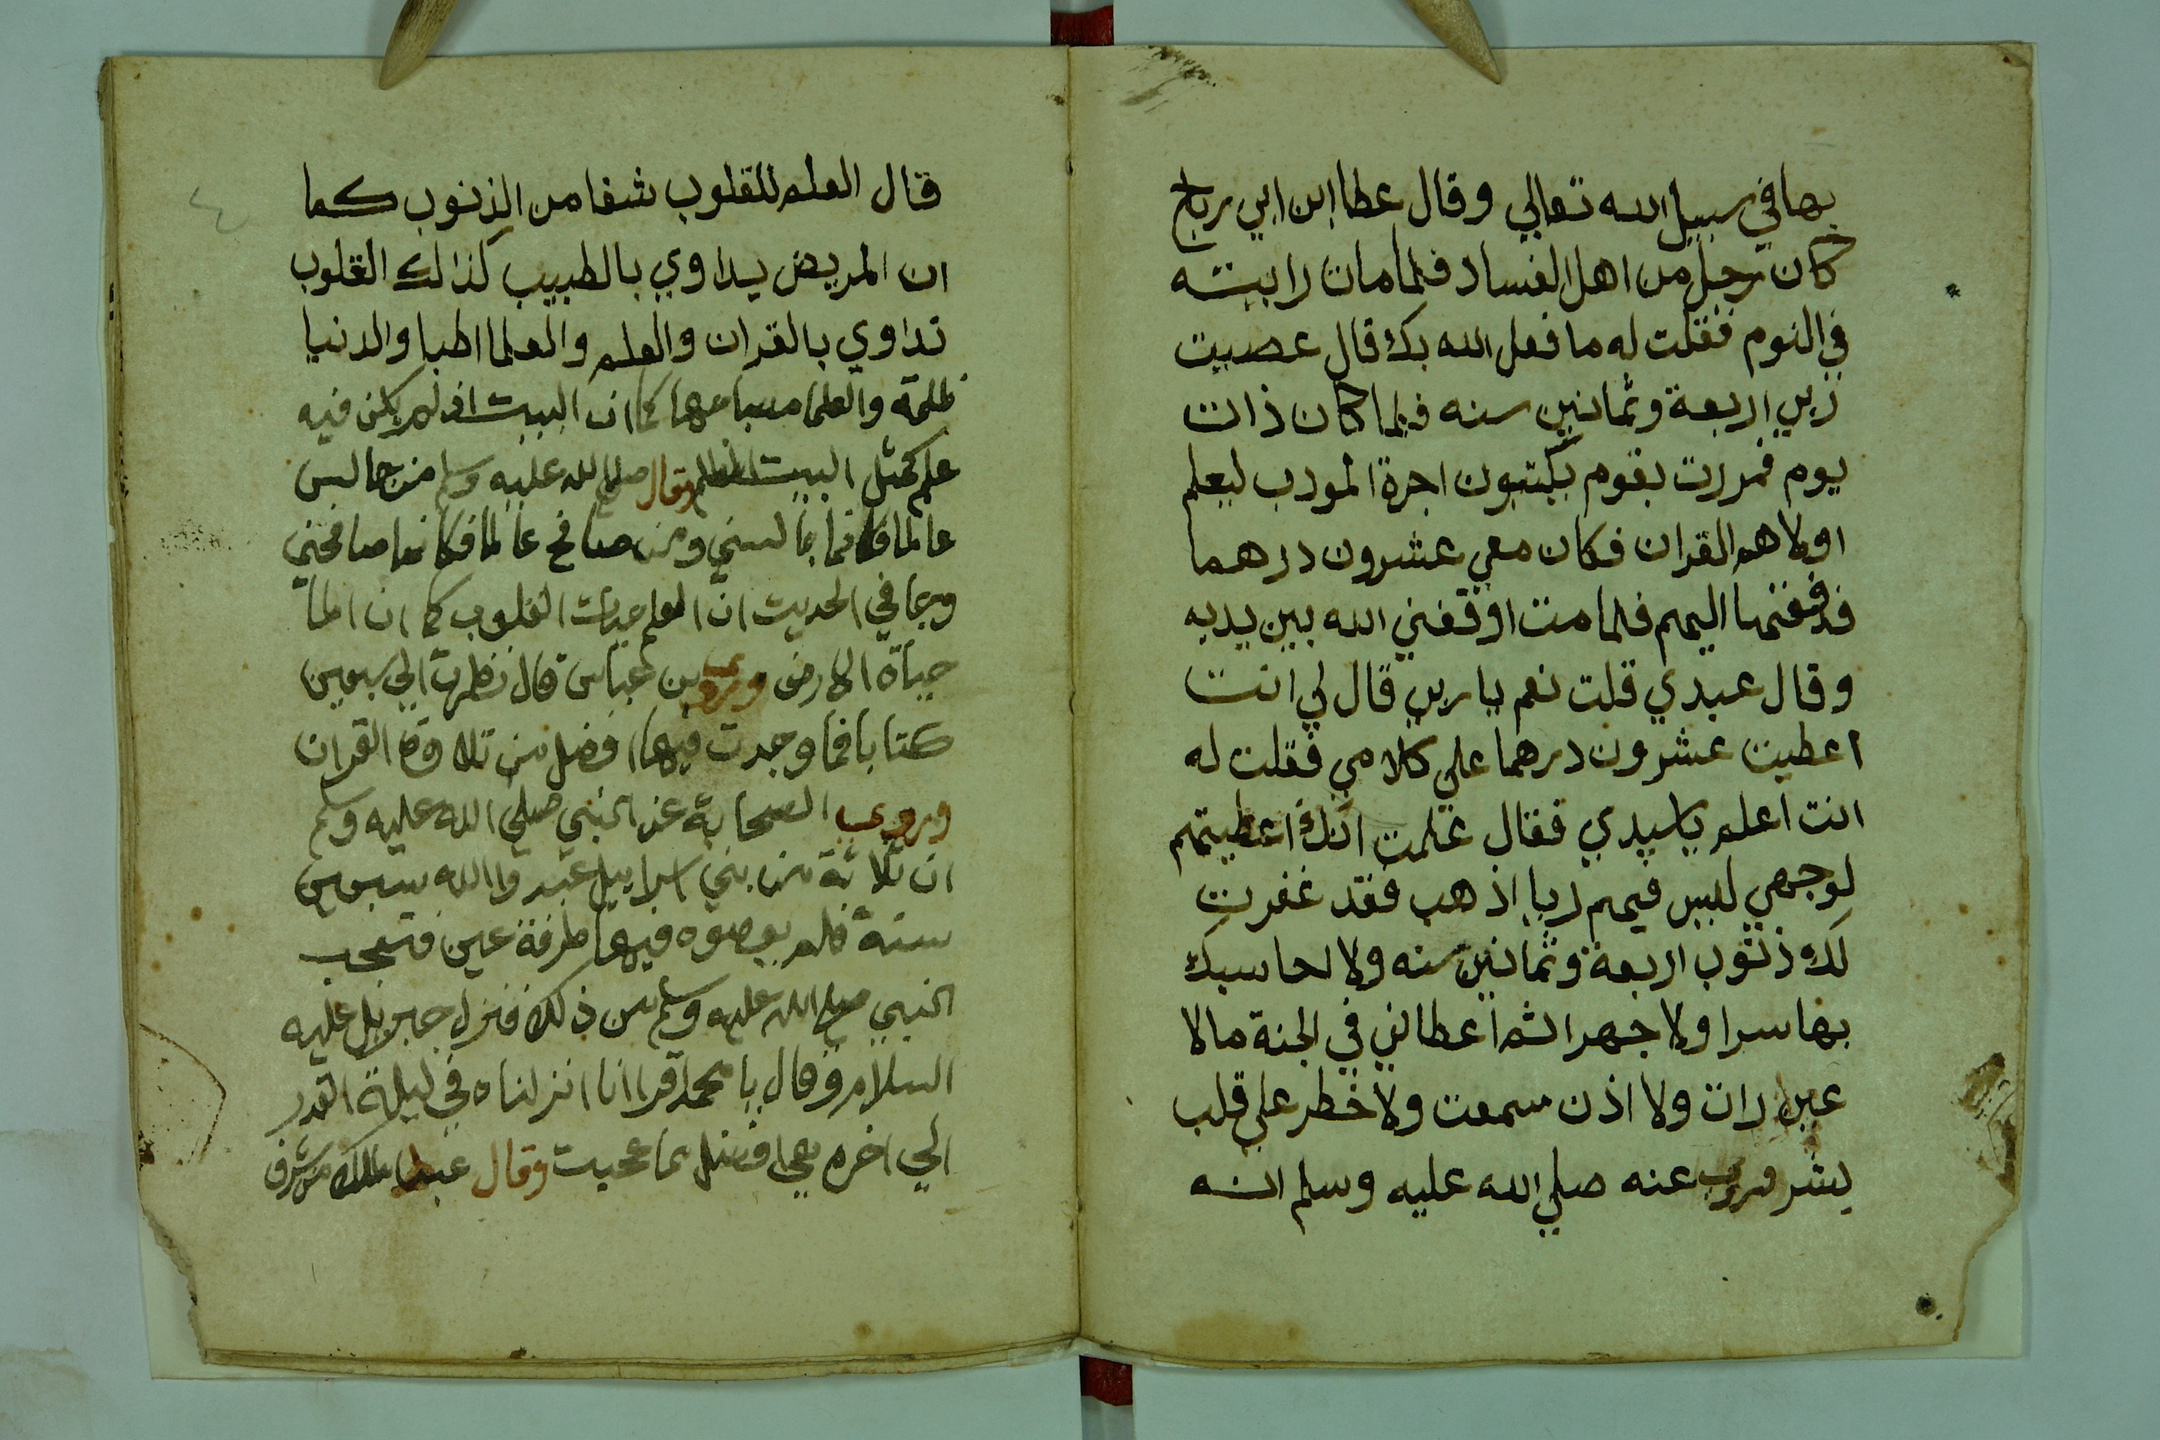 بها في سبيل الله تعالي وقال عطا ابن ابي رباح
كان رجل من اهل الفساد فلما مات رايته
في النوم فقلت له ما فعل الله بك قال عصيت
ربي اربعة وثمانين سنه فلما كان ذات
يوم فمررت بقوم يكتبون اجرة المودب ليعلم
اولادهم القران فكان معي عشرون درهما
فدفعتها اليهم فلما مت اوقفني الله بين يديه
وقال عبدي قلت نعم يا ربي قال لي انت
اعطيت عشرون درهما علي كلامي فقلت له
انت اعلم يا سيدي فقال علمت انك اعطيتهم
لوجهي لليس فيهم ريا اذهب فقد غفرت
لك ذنوب اربعة وثمانين سنه ولا احاسبك
بها سرا ولا جهرا ثم اعطاني في الجنة مالا
عين رات ولا اذن سمعت ولا خطر علي قلب
بشر وروي عنه صلي الله عليه وسلم انه
٤
قال العلم للقلوب شفا من الذنوب كما
ان المريض يداوي بالطبيب كذالك القلوب
تداوي بالقران والعلم والعلما اطبا والدنيا
ظلمة والعلما مصباحها كما ان البيت اذ لم يكن فيه
علم كمثل البيت المظلم وقال صلي الله عليه وسلم من جالس
عالما فكانما جالسني ومن صافح عالما فكانما صافحني
وجا في الحديث ان العلم حيات القلوب كما ان الما
حياة الارض وروي بن عباس قال نظرت الي سبعين
كتابا فما وجدت فيها افضل من تلاوة القران
وروي الصحابة عن النبي صلي الله عليه وسلم
ان ثلاثة من بني اسراييل عبدوا الله سبعين
سنة فلم يعصوه فيها طرفة عين فتعجب
النبي صلي الله عليه وسلم من ذلك فنزل جبريل عليه
السلام وقال يا محمد اقرا انا انزلناه في ليلة القدر
الي اخره هي افضل مما عجبت وقال عبد الملك